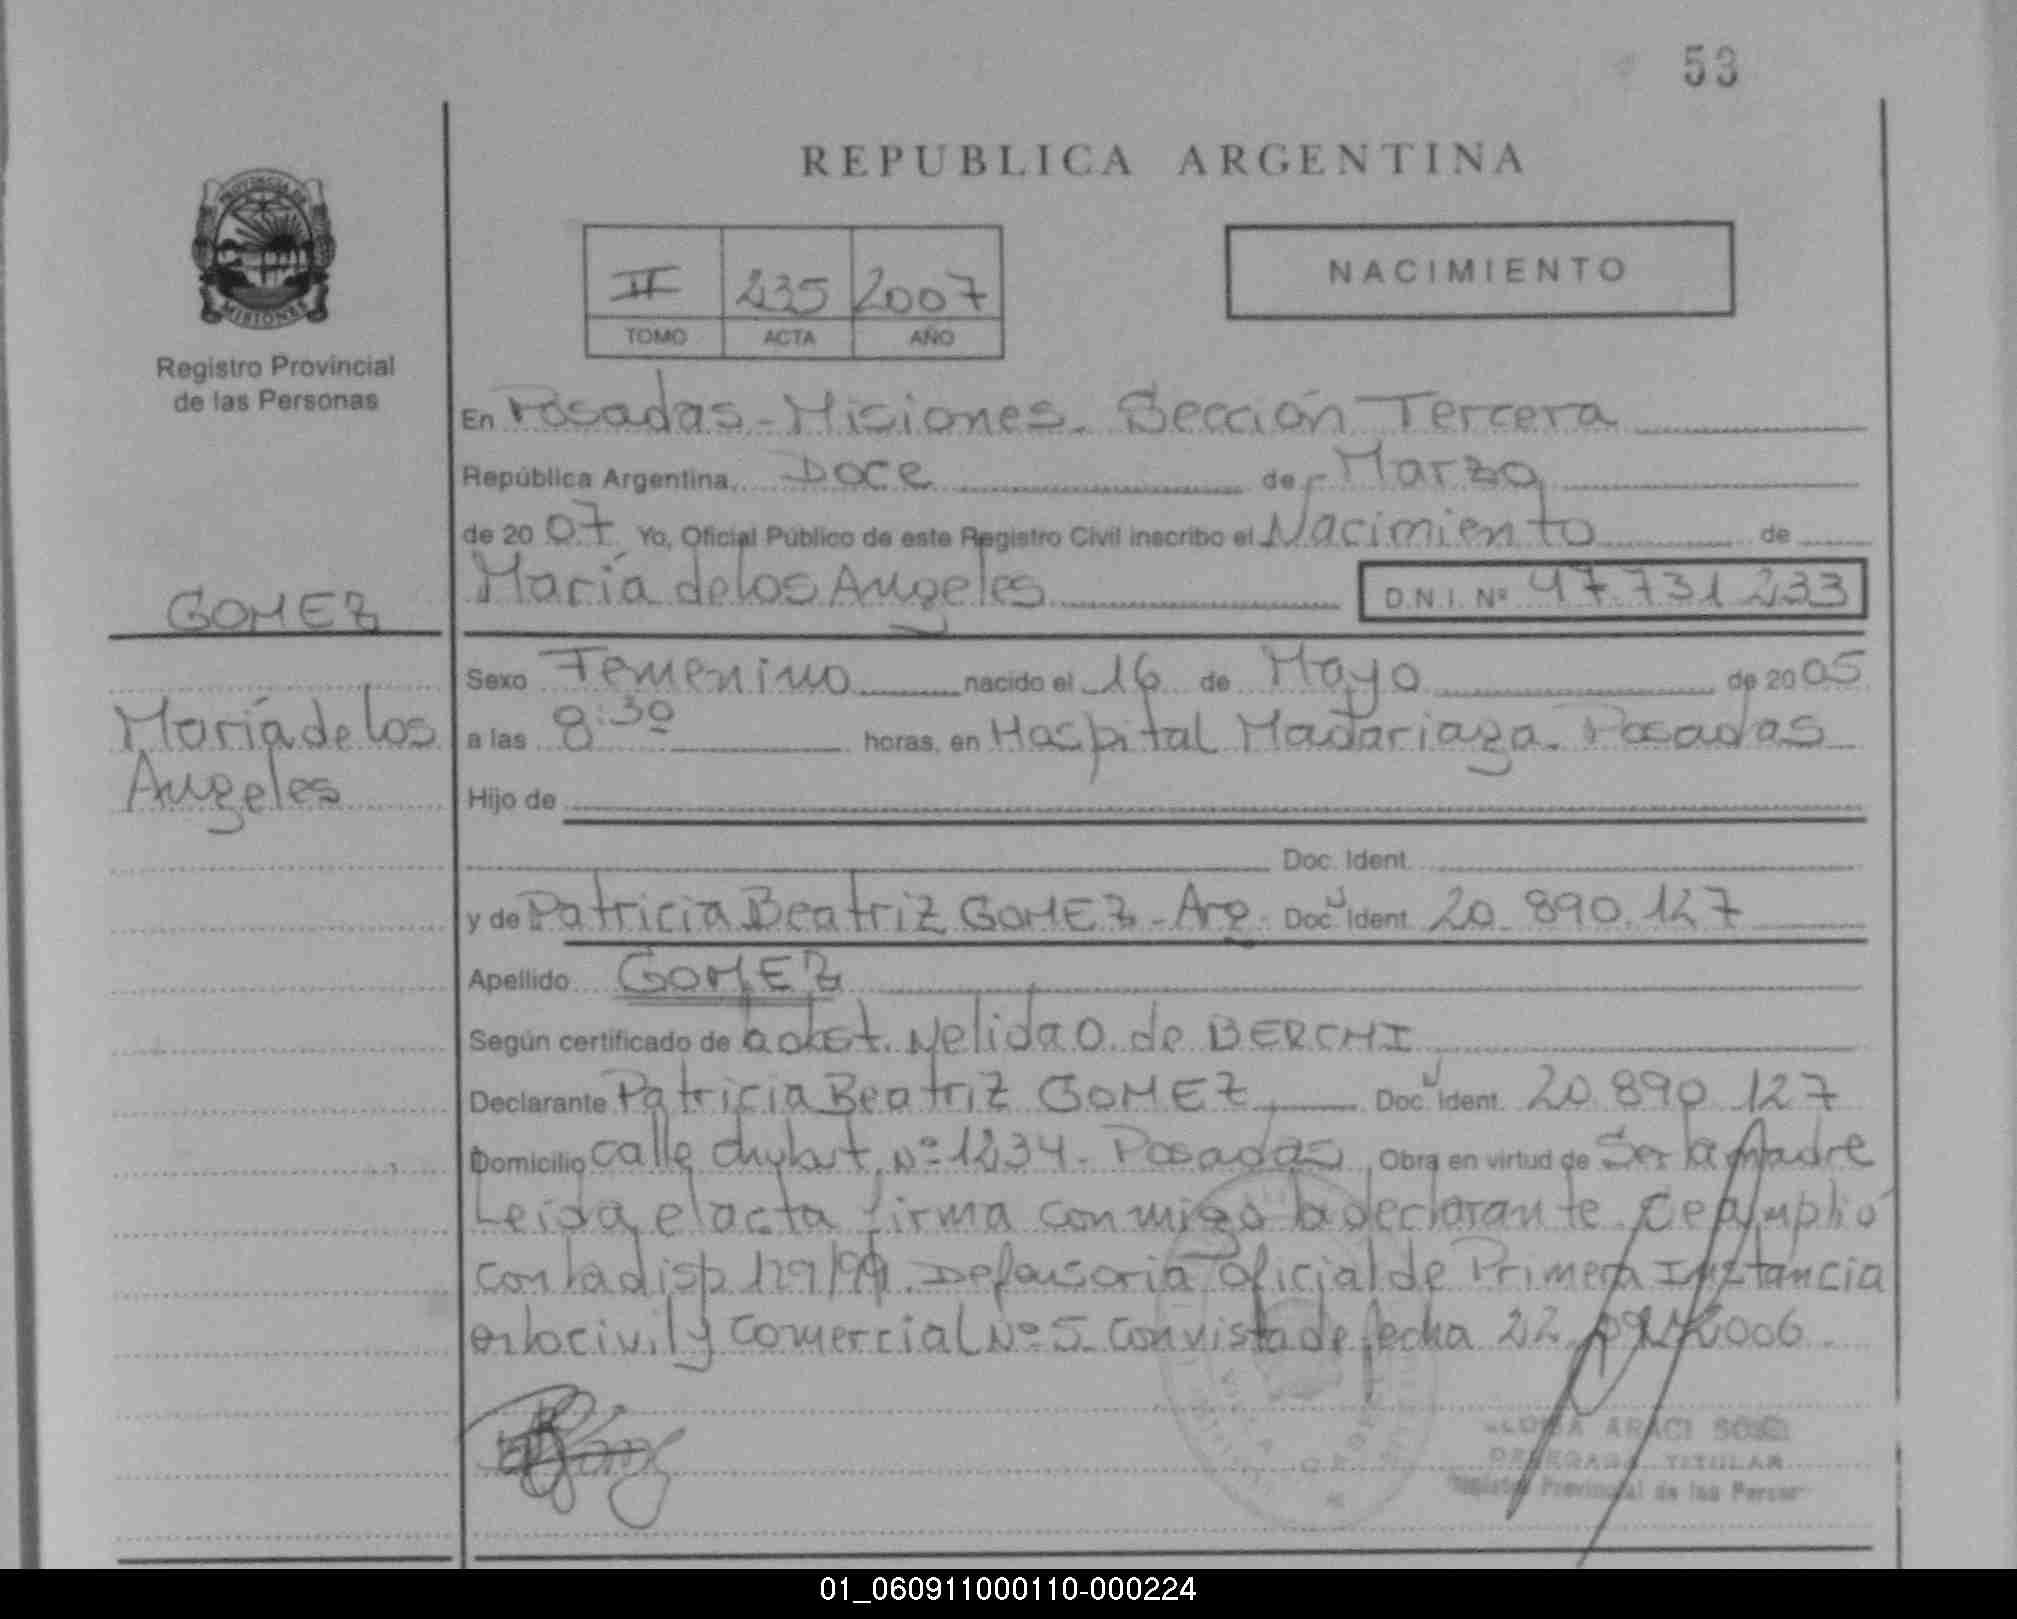 53
REPUBLICA ARGENTINA
PROVINCIA DE
MISIONES
Registro Provincial
de las Personas
II 235 2007
TOMO ACTA AÑO
NACIMIENTO
En Posadas - Misiones. Sección Tercera
República Argentina, Doce de Marzo
de 20 07 Yo, Oficial Público de este Registro Civil inscribo el Nacimiento de
GOMEZ
María de los Angeles D.N.I. Nº 47.731.233
Sexo Femenino nacido el 16 de Mayo de 20 05
María de los
Angeles
a las 8:30 horas, en Hospital Madariaga. Posadas
Hijo de
Doc. Ident.
y de Patricia Beatriz GOMEZ - Arg. Doc. Ident. 20.890.127
Apellido GOMEZ
Según certificado de obst. Nelida O. de BERCHI
Declarante Patricia Beatriz GOMEZ Doc. Ident. 20.890.127
Domicilio calle chubut Nº 1234 - Posadas Obra en virtud de Ser la Madre
Leida el acta firma conmigo la declarante. Se amplió
con la disp 129/99. Defensoria Oficial de Primera Instancia
en lo civil y Comercial Nº 5. Con vista de fecha 22 2006
ARACI
TITULAR
Registro Provincial de las Person
01_060911000110-000224